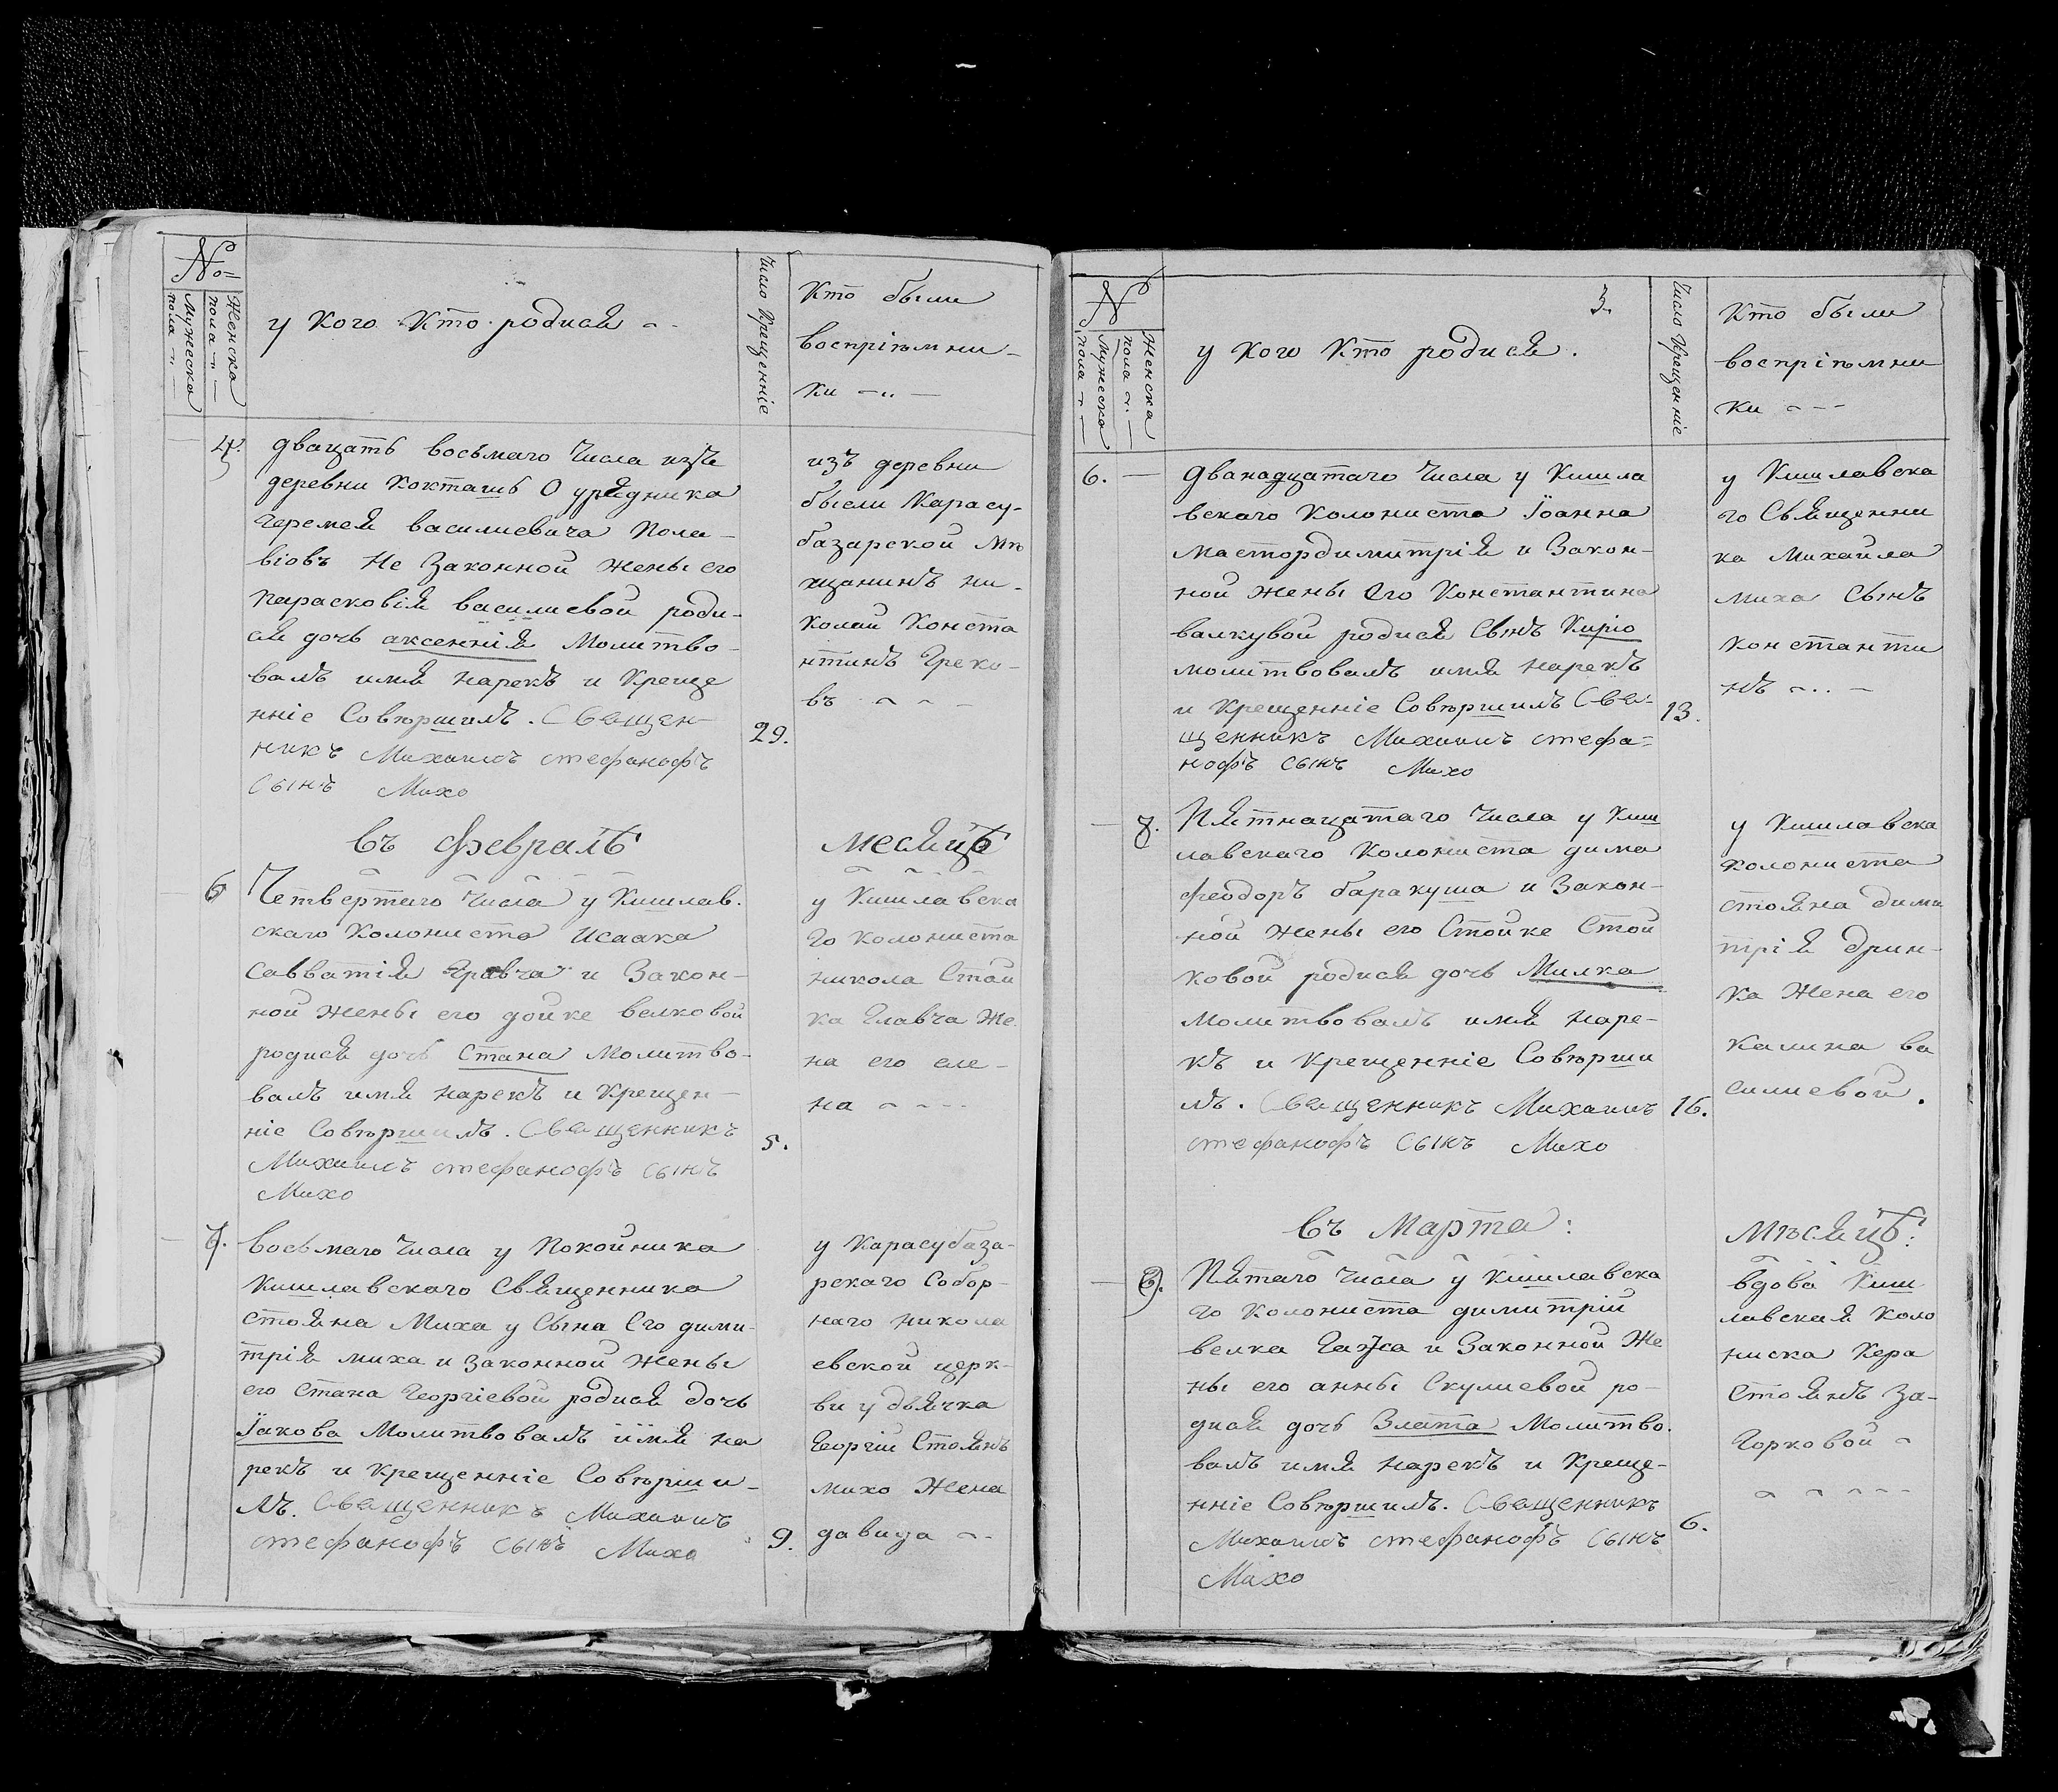 №
Женска
пола
Мужеска
пола
у Кого Кто родися
Число Крещенніе
Кто были
воспріѣмни-
ки
4.
двацать восьмаго Числа изъ
деревни Кокташь Оурядника
Іеремея василиевича Пола-
віовъ Не Законной жены его
Парасковія василиевой роди-
ся дочь аксеннія Молитво-
валъ имя нарекъ и Креще
нніе Совѣршилъ. Свещен-
никъ Михаилъ стефанофъ
Сынъ Михо
29.
изъ деревни
бысели Карасу-
базарской Мѣ
щанинъ ни-
колай Конста
нтинъ Греко-
въ
въ Февралѣ
месяцѣ
6
Четвертаго Числа у Кишлав.
скаго Колониста Исаака
Савватія Гравча и Закон-
ной жены его дойке велковой
родися дочь Стана Молитво-
валъ имя нарекъ и Крещен-
ніе Совѣршилъ. Свещенникъ
Михаилъ стефанофъ сынъ
Михо
5.
у Кишлавска
го колониста
никола Стой
ка Главча Же.
на его еле-
на
7.
восьмаго Числа у Покойника
Кишлавскаго Священника
Стояна Миха у Сына Его дими-
трія миха и законной жены
его Стана Георгіевой родися дочь
Іакова Молитвовалъ имя на
рекъ и Крещенніе Совѣрши-
лъ. Свещенникъ Михаилъ
стефанофъ сынъ Михо
9.
у Карасубаза-
рскаго Собор-
наго никола
евской церк-
ви у дьячка
Георгій Стоянъ
михо Жена
давида
№
Женска
пола
Мужеска
пола
у Кого Кто родися.
3.
Число Крещенніе
Кто были
воспріѣмни
ки
6.
Дванадцатаго Числа у Кишла
вскаго Колониста Іоанна
мастордимитрія и Закон-
ной жены Его Константина
валкувой родися Сынъ Киріо
молитвовалъ имя нарекъ
и Крещенніе Совѣршилъ Све-
щенникъ Михаилъ стефа-
нофъ сынъ Михо
13.
у Кишлавска
го Священни
ка Михаила
Миха Сынъ
Константи
нъ
8.
Пятнацатаго Числа у Киш
лавскаго Колониста дима
феодоръ баракуша и Закон-
ной жены его Стойке Стой
ковой родися дочь Милка
Молитвовалъ имя наре-
къ и Крещенніе Совѣрши
лъ. Свещенникъ Михаилъ
стефанофъ сынъ Михо
16.
у Кишлавска
колониста
стояна дими
трія дрин-
ка Жена его
Калина ва
силиевой.
въ Марта:
Мѣсяцѣ:
9.
Пятаго Числа у Кишлавска
го Колониста димитрій
велка и Законной Же
ны его анны Скулиевой ро-
дися дочь Злата Молитво.
валъ имя нарекъ и Креще-
нніе Совѣршилъ. Свещенникъ
Михаилъ стефанофъ сынъ
Михо
6.
вдова Киш
лавская Коло
ниска Кера
Стоянъ За-
горковой